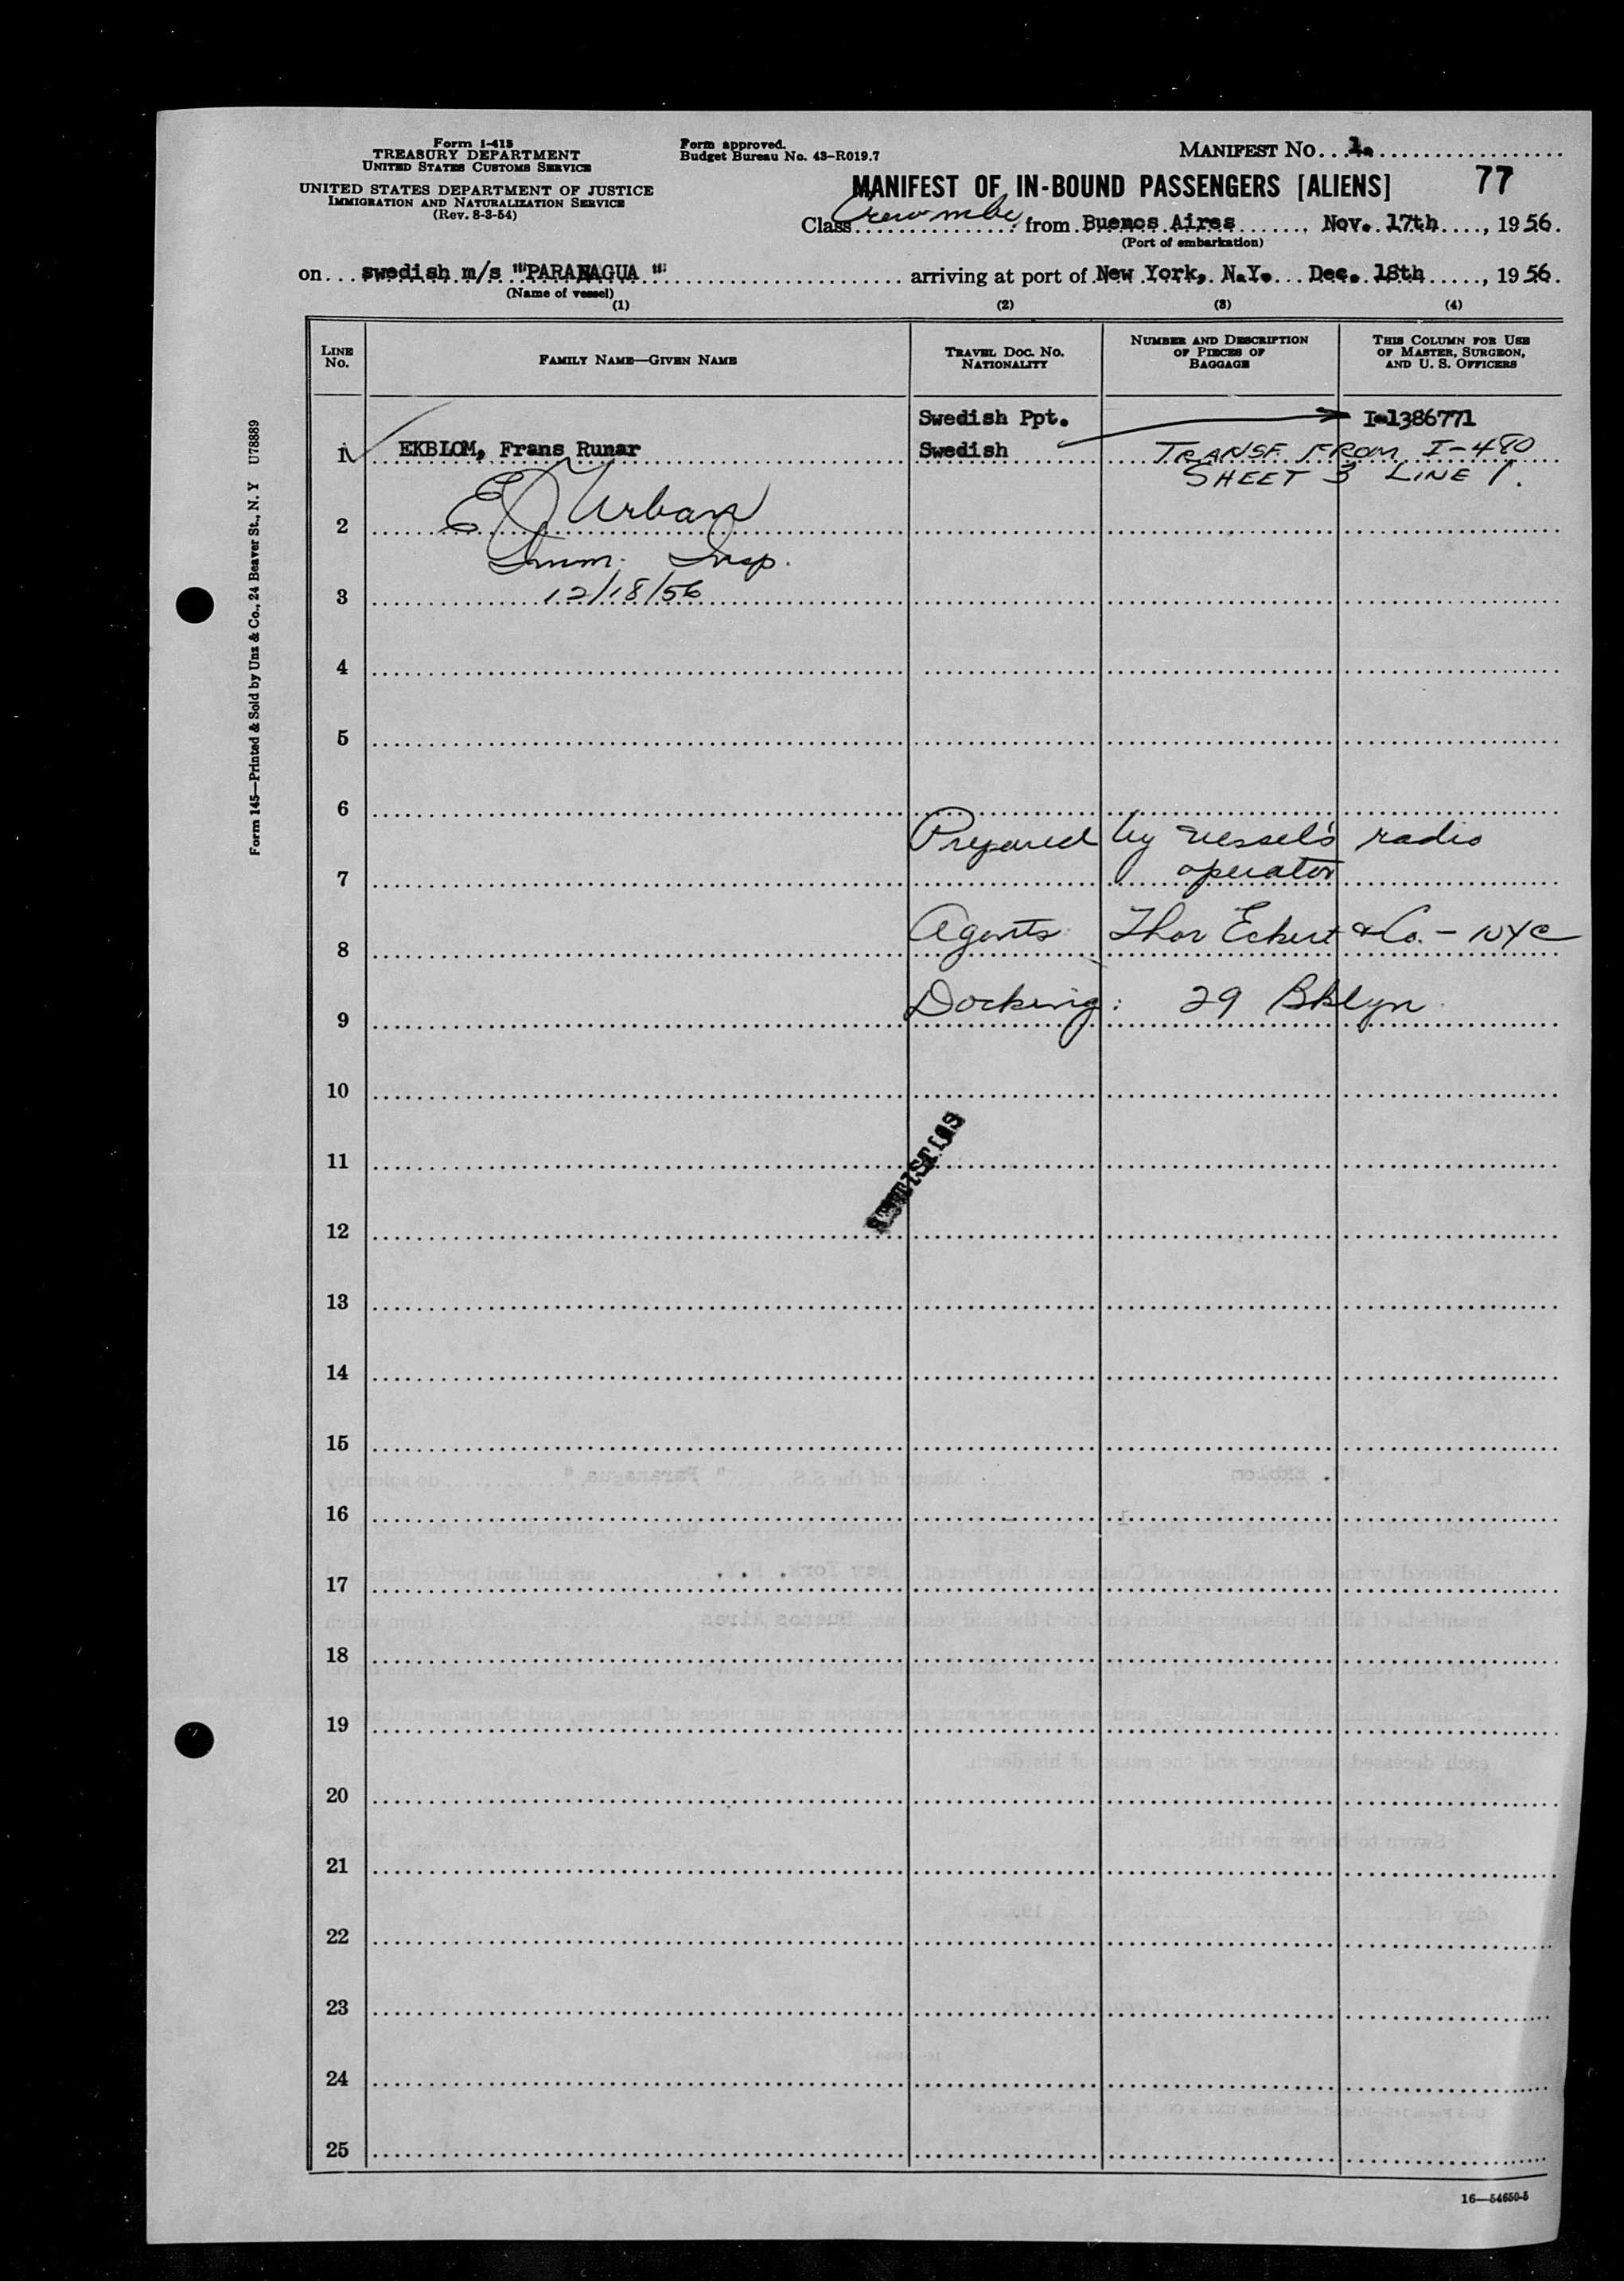 Form I-415
TREASURY DEPARTMENT
UNITED STATES CUSTOMS SERVICE
UNITED STATES DEPARTMENT OF JUSTICE
IMMIGRATION AND NATURALIZATION SERVICE
(Rev. 8-3-54)
Form approved.
Budget Bureau No. 43-R019.7
MANIFEST No. 1.
MANIFEST OF IN-BOUND PASSENGERS [ALIENS] 77
Class Crewmbr from Buenos Aires, Nov. 17th, 1956.
(Port of embarkation)
on swedish m/s "PARANAGUA" arriving at port of New York, N.Y. Dec. 18th, 1956.
(Name of vessel)
(1) (2) (3) (4)
LINE No. FAMILY NAME—GIVEN NAME TRAVEL DOC. NO. NATIONALITY NUMBER AND DESCRIPTION OF PIECES OF BAGGAGE THIS COLUMN FOR USE OF MASTER, SURGEON, AND U. S. OFFICERS
Swedish Ppt. I-1386771
1 EKBLOM, Frans Runar Swedish TRANSF FROM I-480
SHEET 3 LINE 1.
E Urban
2
Imm. Insp.
3 12/18/56
4
5
6
Prepared by vessel's radio
7 operator
8 Agents: Thor Eckert & Co. - NYC
9 Docking: 29 Bklyn
10
11
STATISTICS
12
13
14
15
16
17
18
19
20
21
22
23
24
25
16—54650-5
Form 145—Printed & Sold by Unz & Co., 24 Beaver St., N. Y U78889